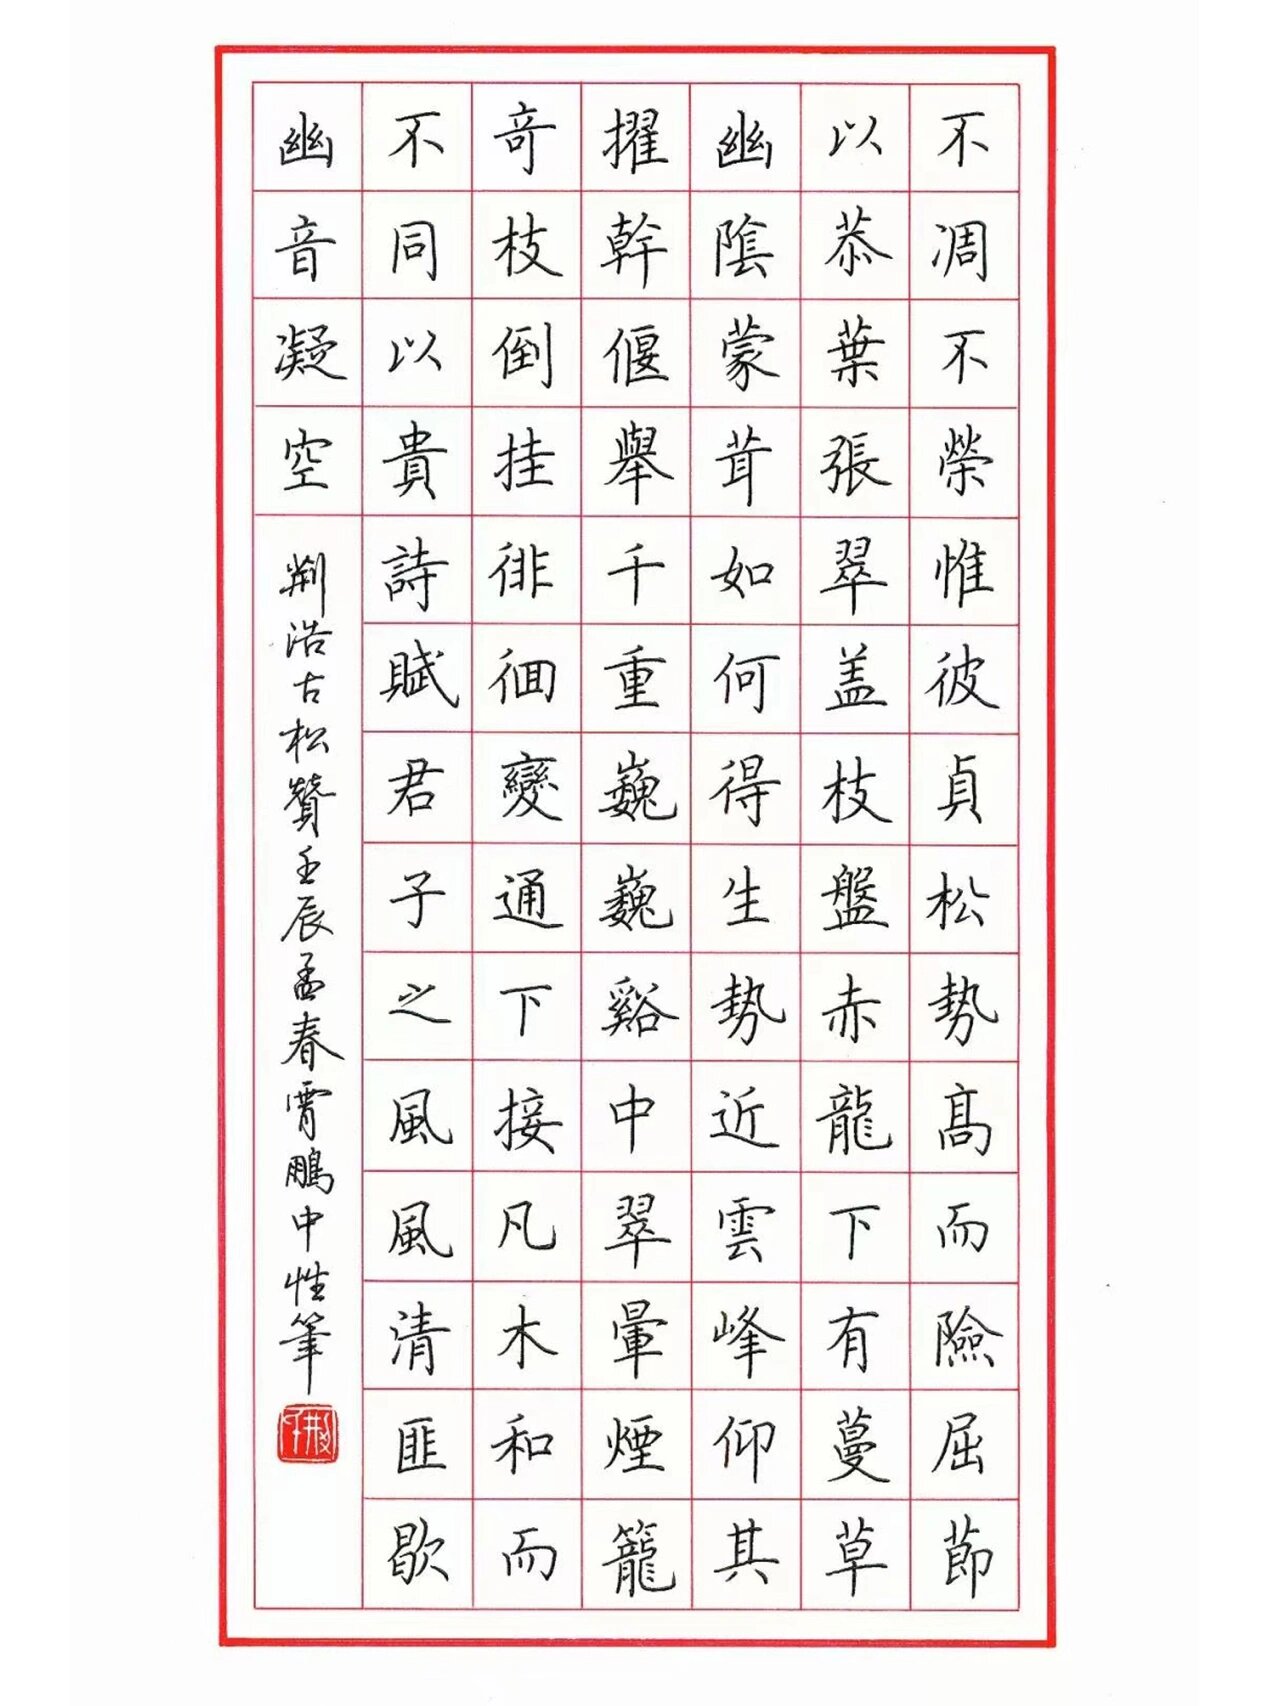 不凋不榮惟彼貞松勢高而險屈節
以恭葉張翠盖枝盤赤龍下有蔓草
幽陰蒙茸如何得生勢近雲峰仰其
擢幹偃舉千重巍巍谿中翠暈煙籠
奇枝倒挂徘徊變通下接凡木和而
不同以貴詩賦君子之風風清匪歇
幽音凝空
荆浩古松贊壬辰孟春霄鵬中性筆